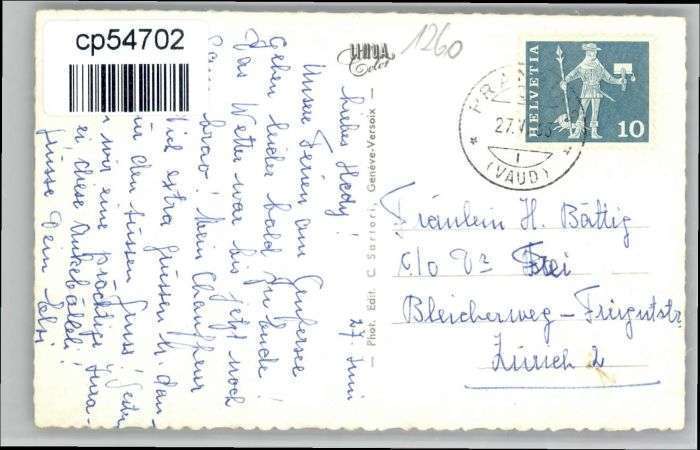 cp54702
1260
Color
HELVETIA
10
27.V
1
(VAUD)
— Phot. Edit. C. Sartori, Genève-Versoix —
27. Juni
Liebes Hedy!
Unsere Ferien am Genfersee
gehen leider bald zu Ende!
Das Wetter war bis jetzt noch
brav! Mein Chauffeur
viel extra Grüssen u. dan-
den süssen Gruss!
wir eine prächtige Jura-
diese Ankebälleli!
Grüsse Dein
Fräulein H. Bättig
c/o Dr Frei
Bleicherweg-Freigutstr
Zürich 2